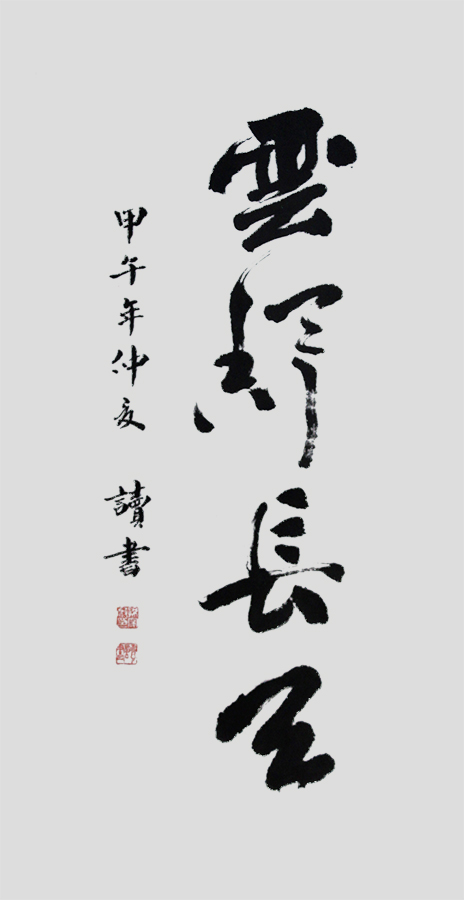 雲長天
甲午年仲夏 讀書